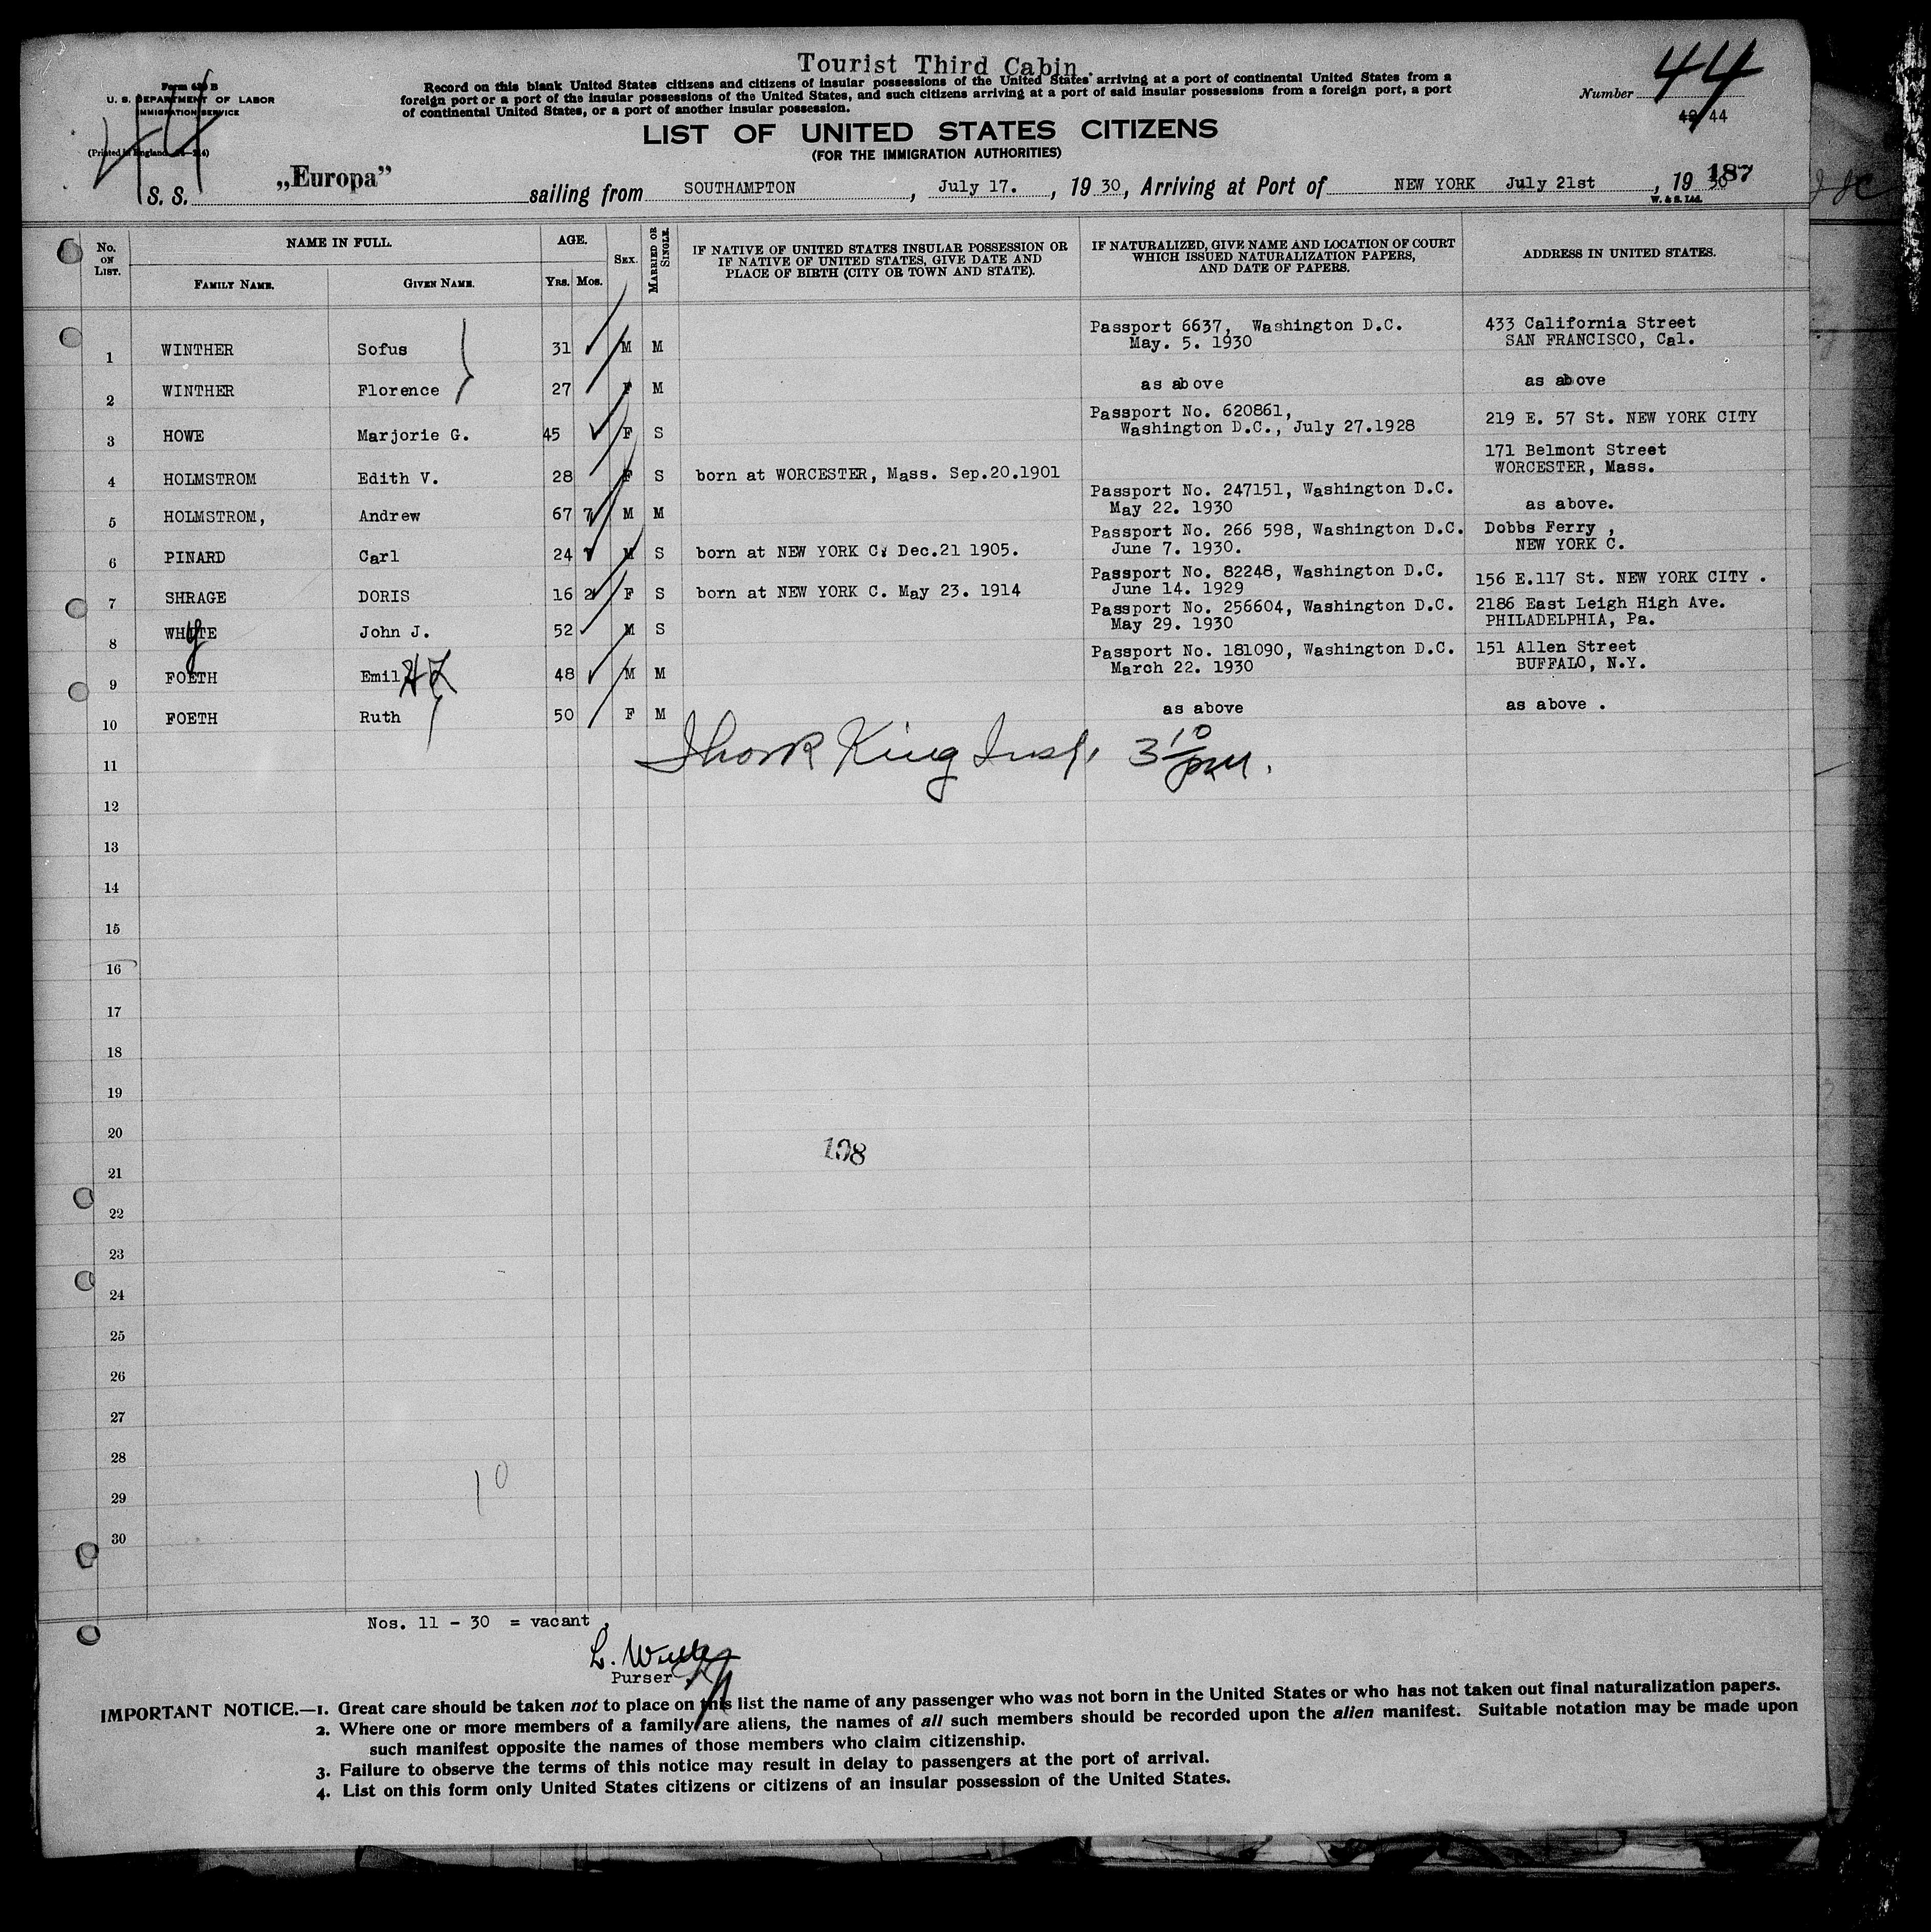 Tourist Third Cabin.
Form 630 B
U. S. DEPARTMENT OF LABOR
IMMIGRATION SERVICE
44
Record on this blank United States citizens and citizens of insular possessions of the United States arriving at a port of continental United States from a
foreign port or a port of the insular possessions of the United States, and such citizens arriving at a port of said insular possessions from a foreign port, a port
of continental United States, or a port of another insular possession.
Number 44
44
LIST OF UNITED STATES CITIZENS
(FOR THE IMMIGRATION AUTHORITIES)
S. S. „Europa” sailing from SOUTHAMPTON , July 17. , 19 30, Arriving at Port of NEW YORK July 21st , 19 30 187
W. & S. Ltd.
No. ON LIST. NAME IN FULL. AGE. SEX. MARRIED OR SINGLE. IF NATIVE OF UNITED STATES INSULAR POSSESSION OR IF NATIVE OF UNITED STATES, GIVE DATE AND PLACE OF BIRTH (CITY OR TOWN AND STATE). IF NATURALIZED, GIVE NAME AND LOCATION OF COURT WHICH ISSUED NATURALIZATION PAPERS, AND DATE OF PAPERS. ADDRESS IN UNITED STATES.
FAMILY NAME. GIVEN NAME. YRS. MOS.
1 WINTHER Sofus 31 M M Passport 6637, Washington D.C. May. 5. 1930 433 California Street SAN FRANCISCO, Cal.
2 WINTHER Florence 27 F M as above as above
3 HOWE Marjorie G. 45 F S Passport No. 620861, Washington D.C., July 27.1928 219 E. 57 St. NEW YORK CITY
4 HOLMSTROM Edith V. 28 F S born at WORCESTER, Mass. Sep.20.1901 171 Belmont Street WORCESTER, Mass.
5 HOLMSTROM, Andrew 67 7 M M Passport No. 247151, Washington D.C. May 22. 1930 as above.
6 PINARD Carl 24 M S born at NEW YORK C. Dec.21 1905. Passport No. 266 598, Washington D.C. June 7. 1930. Dobbs Ferry , NEW YORK C.
7 SHRAGE DORIS 16 2 F S born at NEW YORK C. May 23. 1914 Passport No. 82248, Washington D.C. June 14. 1929 156 E.117 St. NEW YORK CITY .
8 WHYTE John J. 52 M S Passport No. 256604, Washington D.C. May 29. 1930 2186 East Leigh High Ave. PHILADELPHIA, Pa.
9 FOETH Emil 48 M M Passport No. 181090, Washington D.C. March 22. 1930 151 Allen Street BUFFALO, N.Y.
10 FOETH Ruth 50 F M as above as above .
11 King Insp. 3 10 PM.
12
13
14
15
16
17
18
19
20
108
21
22
23
24
25
26
27
28
10
29
30
Nos. 11 - 30 = vacant
Purser
IMPORTANT NOTICE.—1. Great care should be taken not to place on this list the name of any passenger who was not born in the United States or who has not taken out final naturalization papers.
2. Where one or more members of a family are aliens, the names of all such members should be recorded upon the alien manifest. Suitable notation may be made upon
such manifest opposite the names of those members who claim citizenship.
3. Failure to observe the terms of this notice may result in delay to passengers at the port of arrival.
4. List on this form only United States citizens or citizens of an insular possession of the United States.